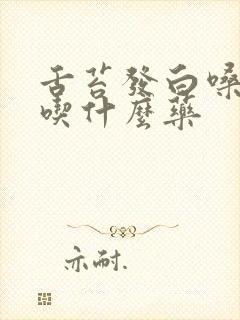 舌苔發白嗓
喫什麼藥
亦耐.